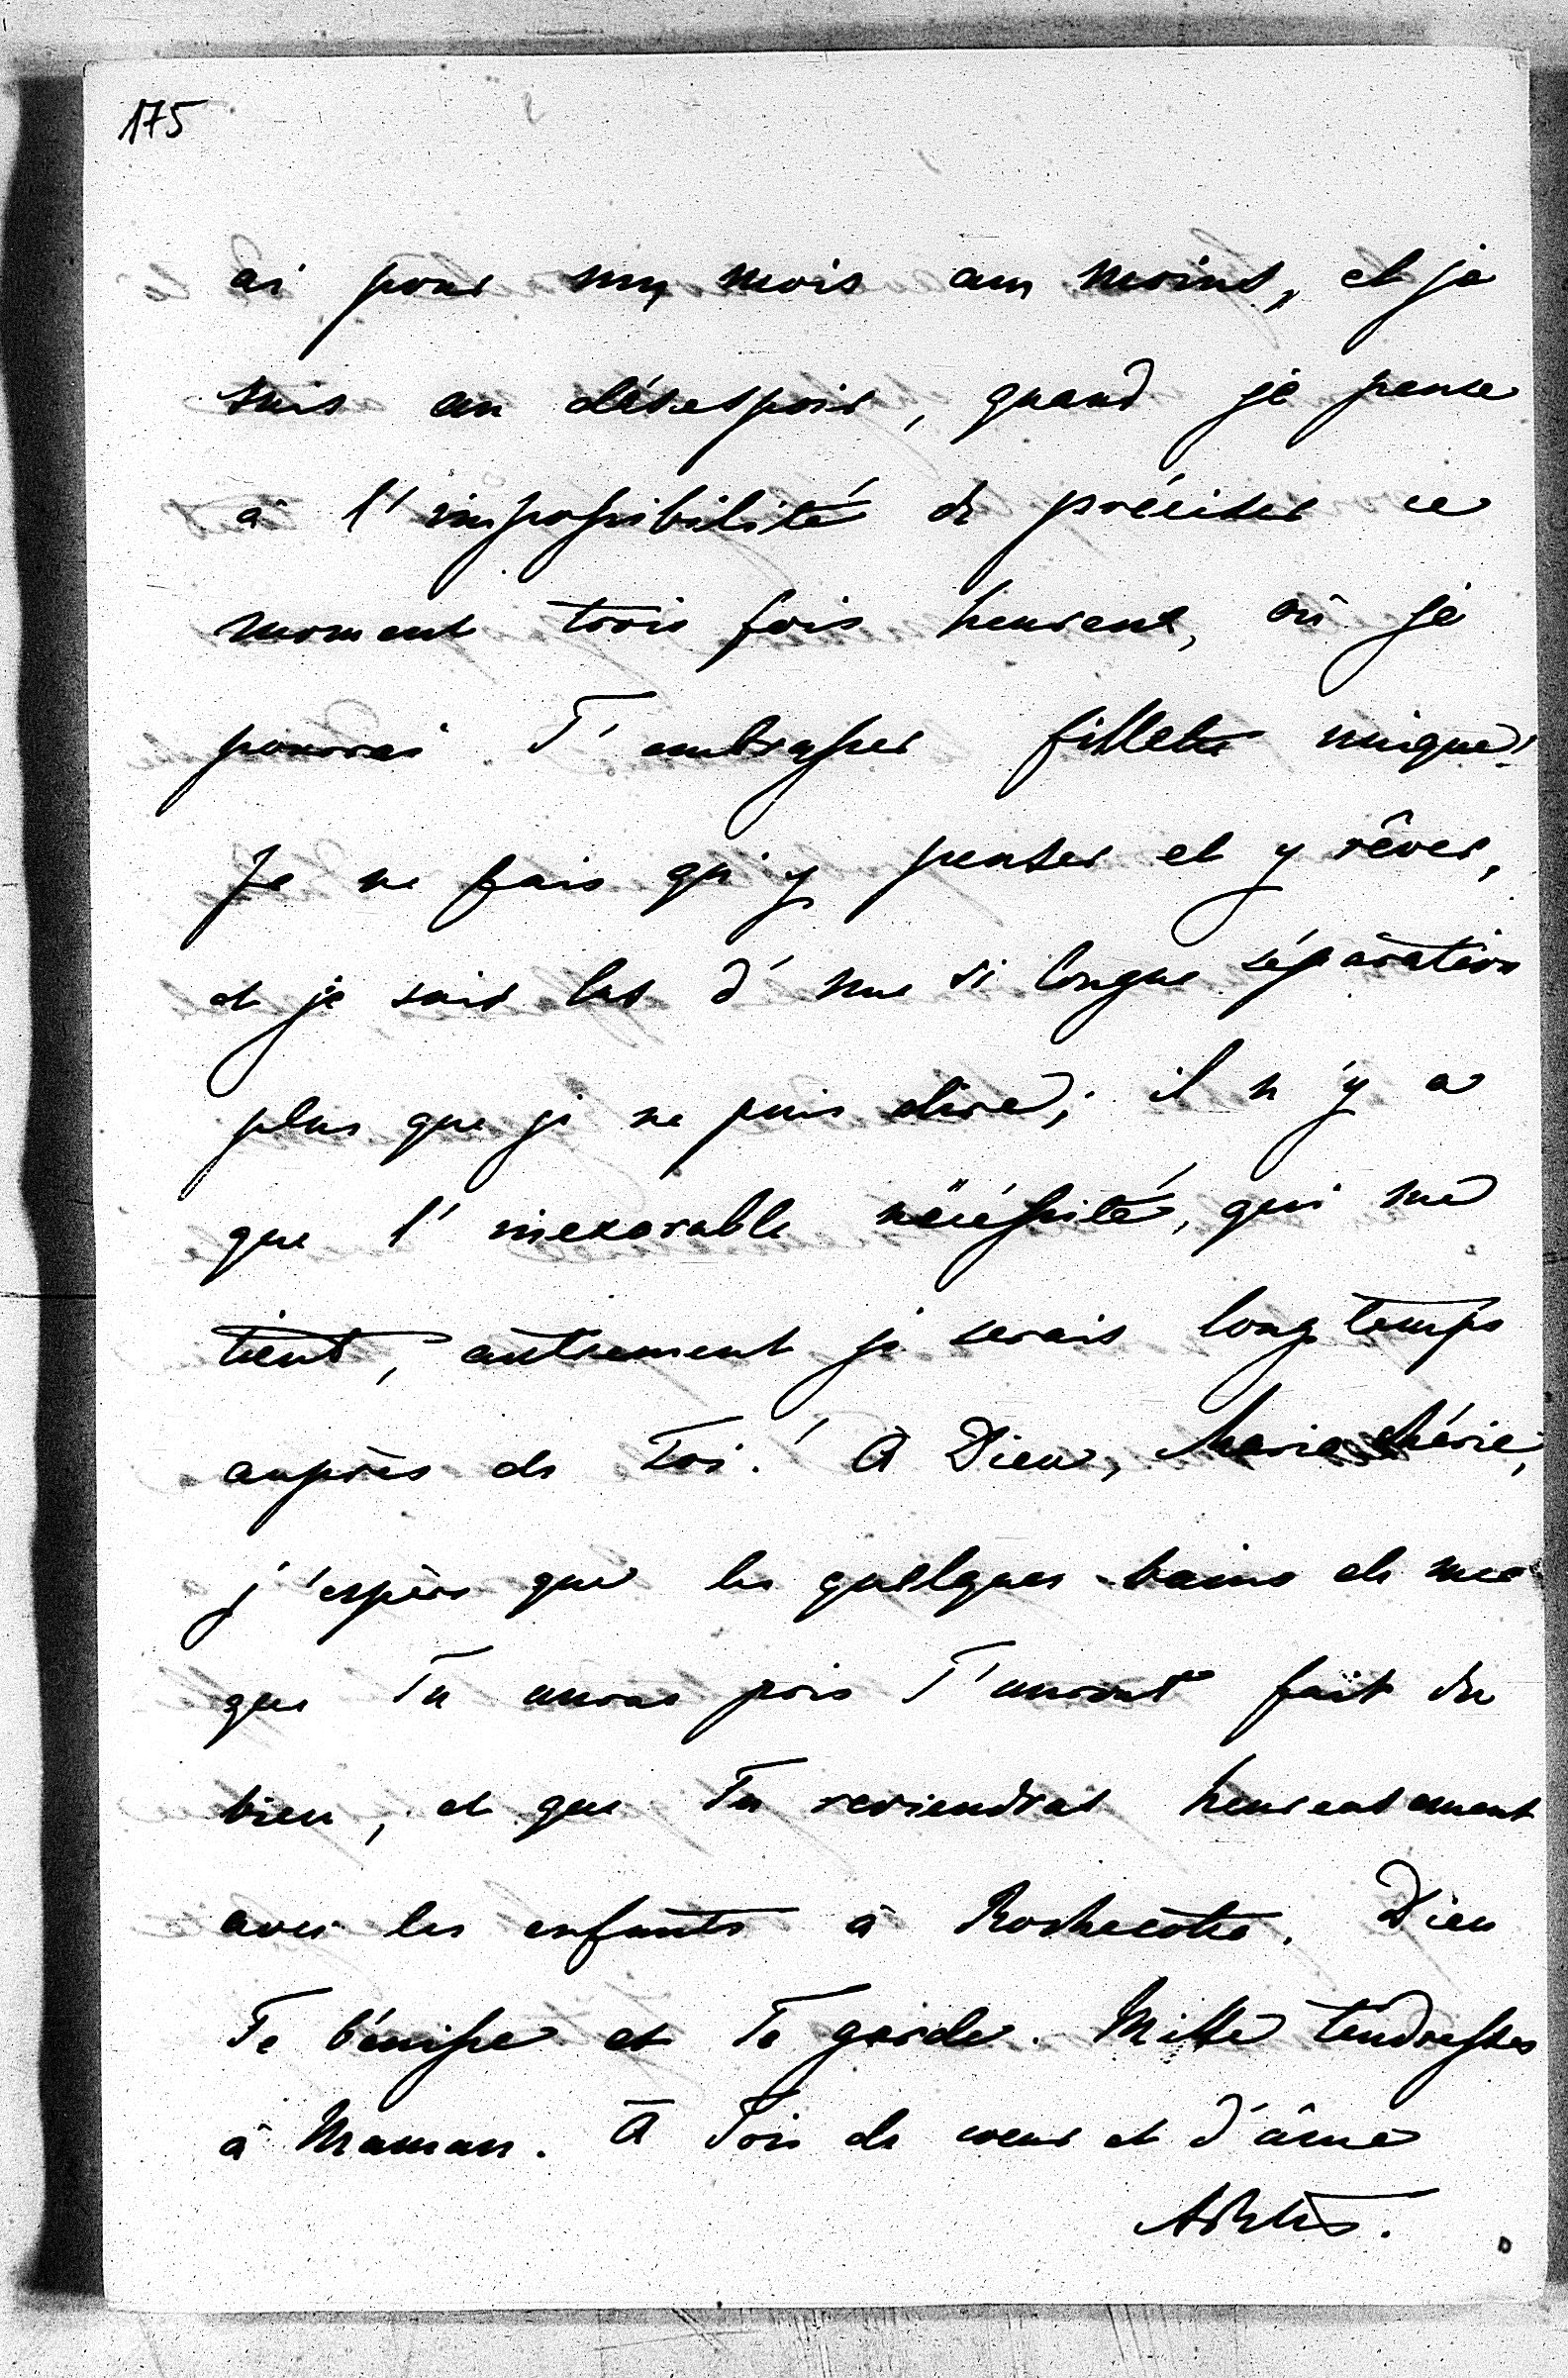 175
ai pour un mois au moins, et je
suis au désespoir, quand je pense
à l'impossibilité de préciser ce
moment trois fois heureux, où je
pourrai T'embrasser fillette unique!
Je ne fais qu'y penser et y rêver,
et je suis las d'une si longue séparation
plus que je ne puis dire; il n'y a
que l'inexorable nécéssité, qui me
tient, autrement je serais longtemps
auprès de Toi! A Dieu, Marie chérie,
j'espère que les quelques bains de mer
que Tu auras pris T'auront fait du
bien, et que Tu reviendras heureusement
avec les enfants à Rochecotte. Dieu
Te bénisse et Te garde. Mille tendresses
à Maman. A Toi de coeur et d'âme